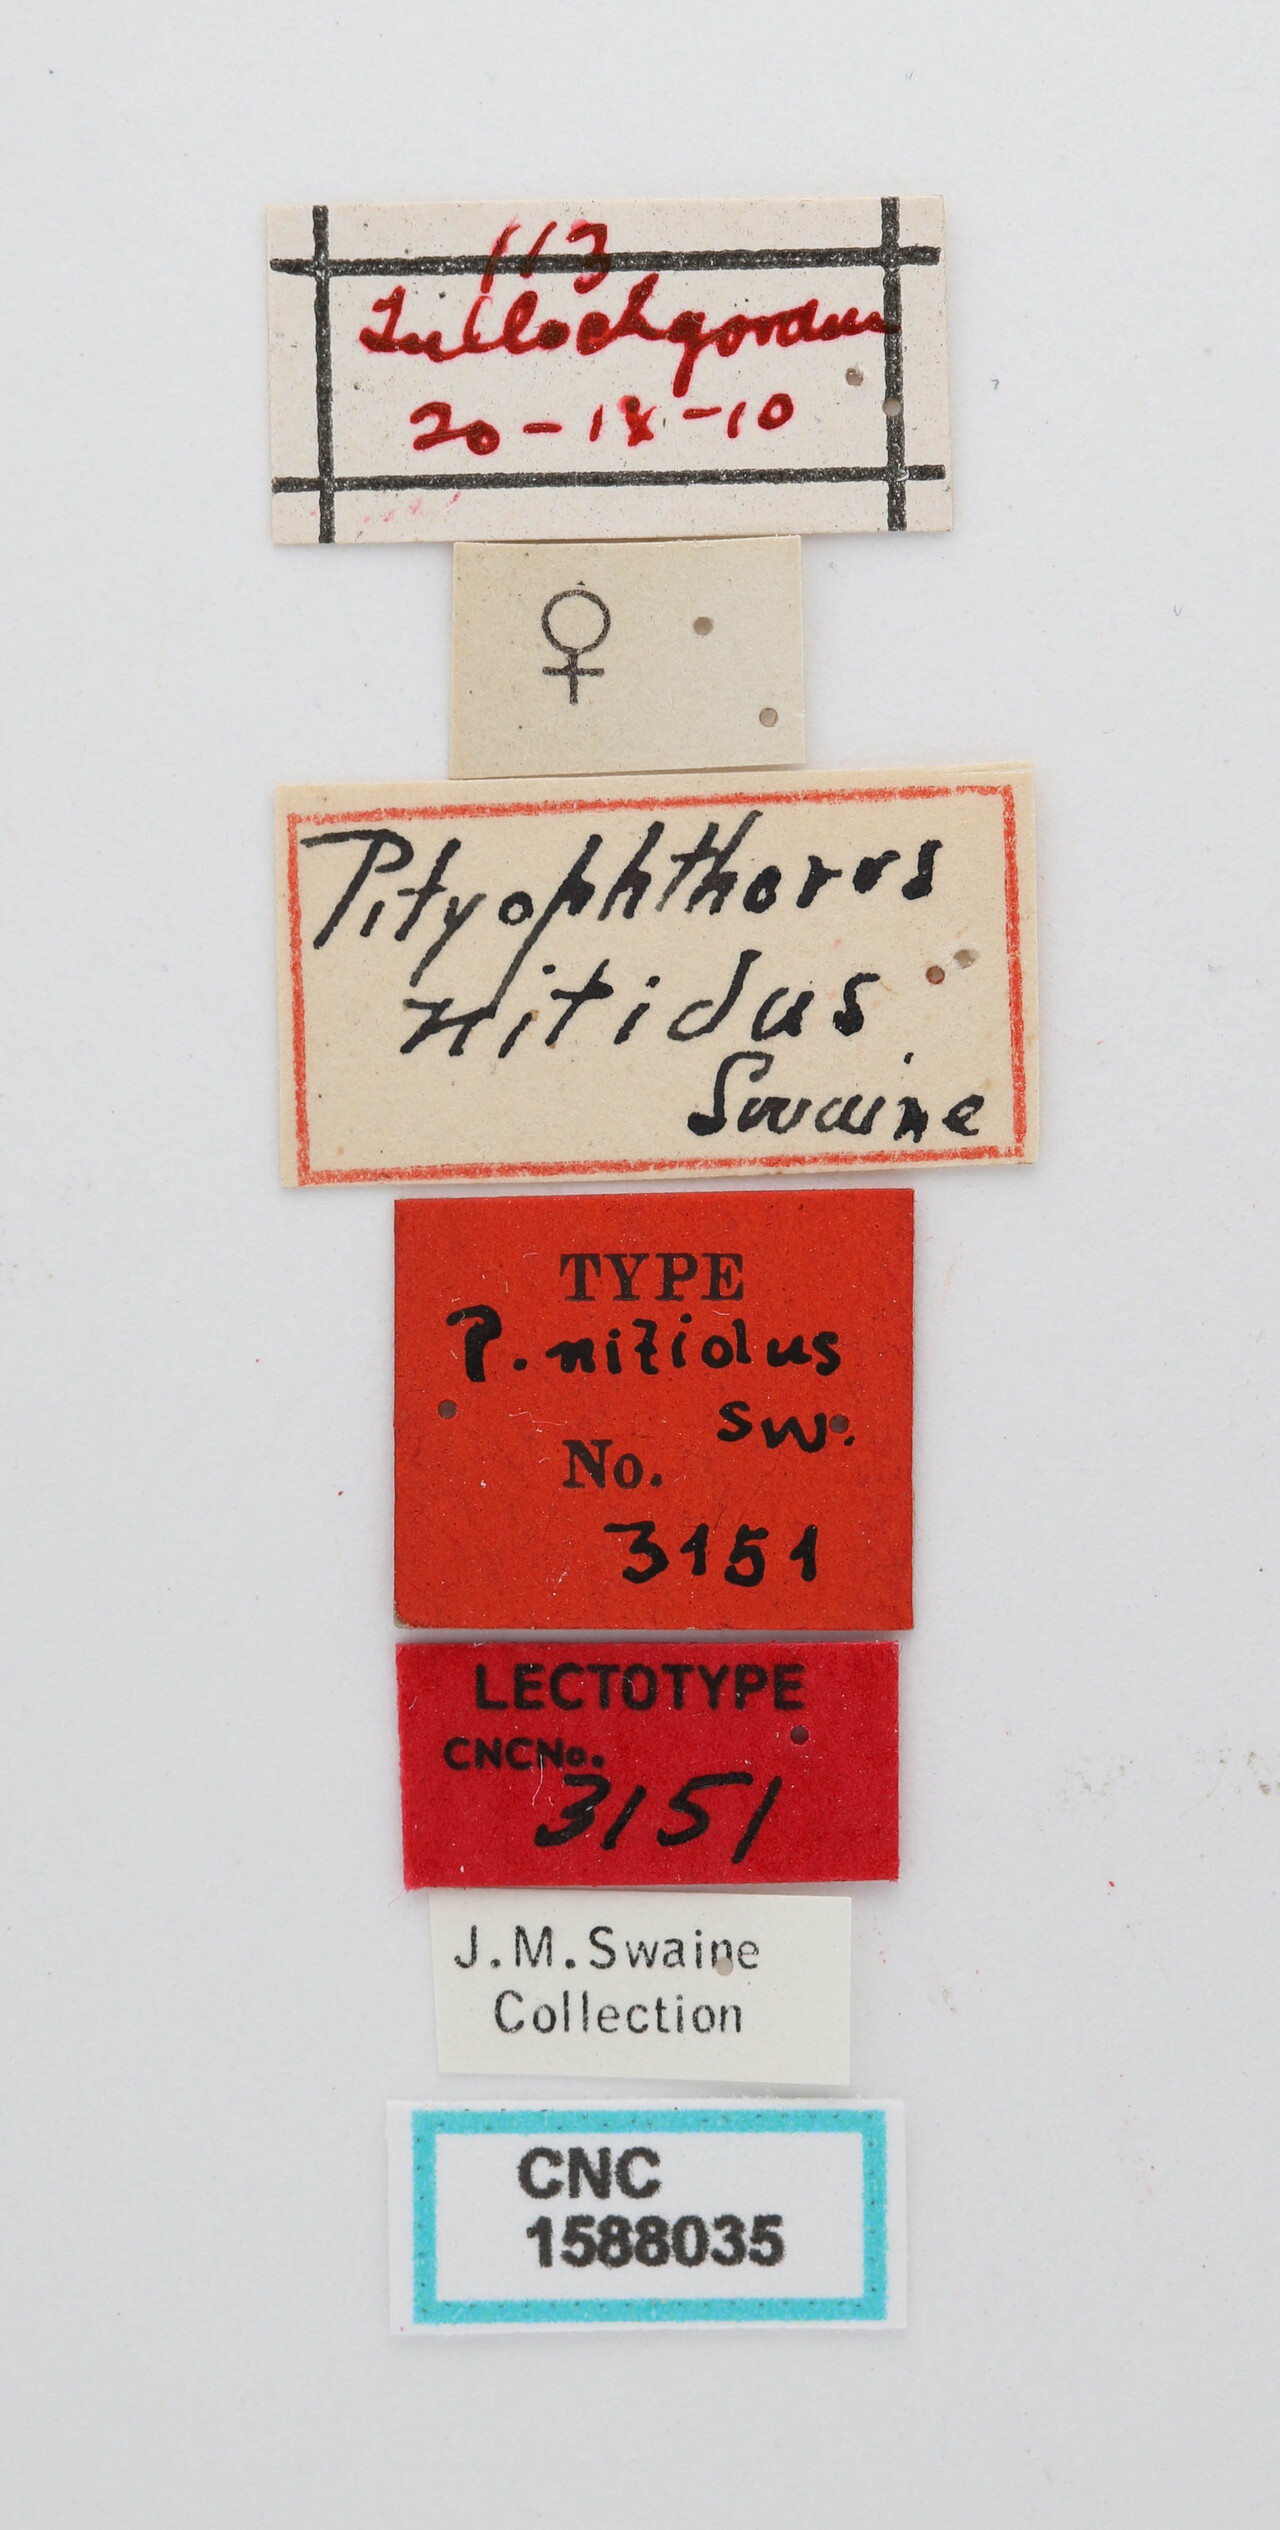 113
Tullochgorum
20-IX-10
♀
Pityophthorus
nitidus
Swaine
TYPE
P. nitidus
Sw.
No.
3151
LECTOTYPE
CNCNo.
3151
J.M.Swaine
Collection
CNC
1588035